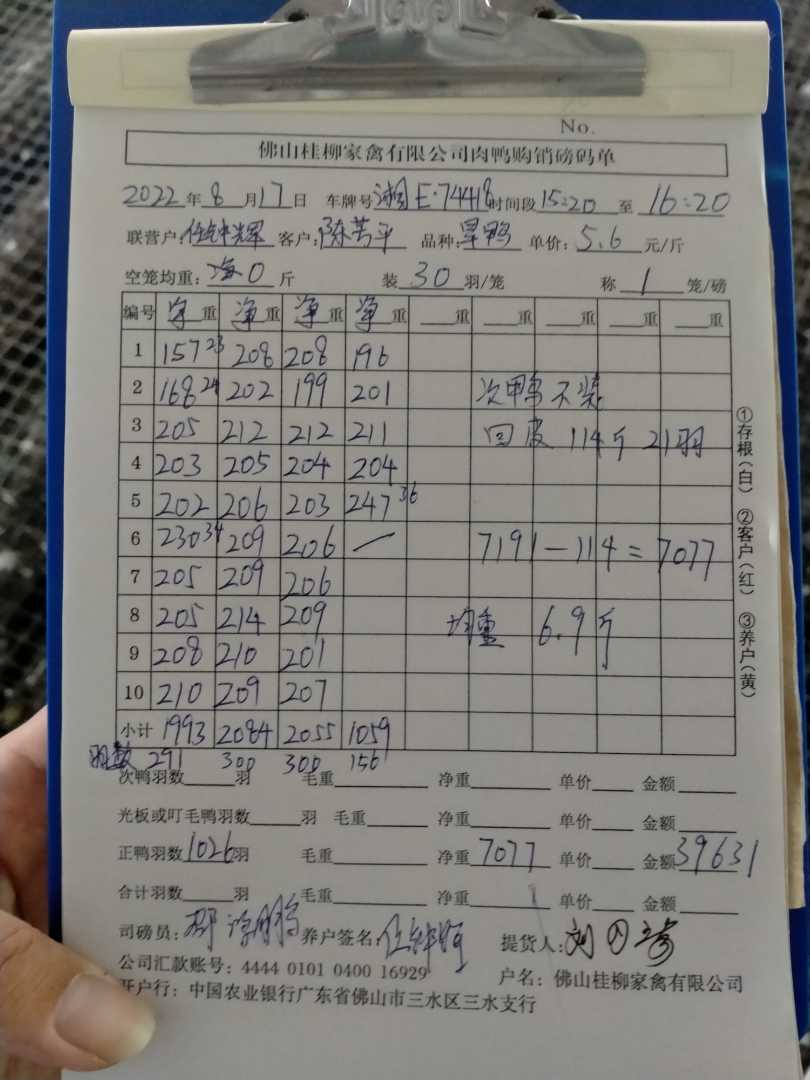 No.
佛山桂柳家禽有限公司肉鸭购销磅码单
2022年8月17日 车牌号湘E·74418时间段15:20至16:20
联营户:任钟辉 客户:陈芳平 品种:旱鸭 单价:5.6元/斤
空笼均重:海0斤 装30羽/笼 称1笼/磅
编号 净重 净重 净重 净重 重 重 重 重 重
1 157 23 208 208 196
2 168 24 202 199 201 次鸭不装
3 205 212 212 211 回皮 114斤 21羽
4 203 205 204 204
5 202 206 203 247 36
6 230 34 209 206 — 7191-114=7077
7 205 209 206
8 205 214 209 均重 6.9斤
9 208 210 201
10 210 209 207
小计 1993 2084 2055 1059
羽数 291 300 300 156
次鸭羽数 羽 毛重 净重 单价 金额
光板或叮毛鸭羽数 羽 毛重 净重 单价 金额
正鸭羽数1026羽 毛重 净重7077 单价 金额39631
合计羽数 羽 毛重 净重 单价 金额
司磅员: 养户签名:任钟辉 提货人:刘
公司汇款账号:4444 0101 0400 16929 户名:佛山桂柳家禽有限公司
开户行:中国农业银行广东省佛山市三水区三水支行
①存根(白) ②客户(红) ③养户(黄)